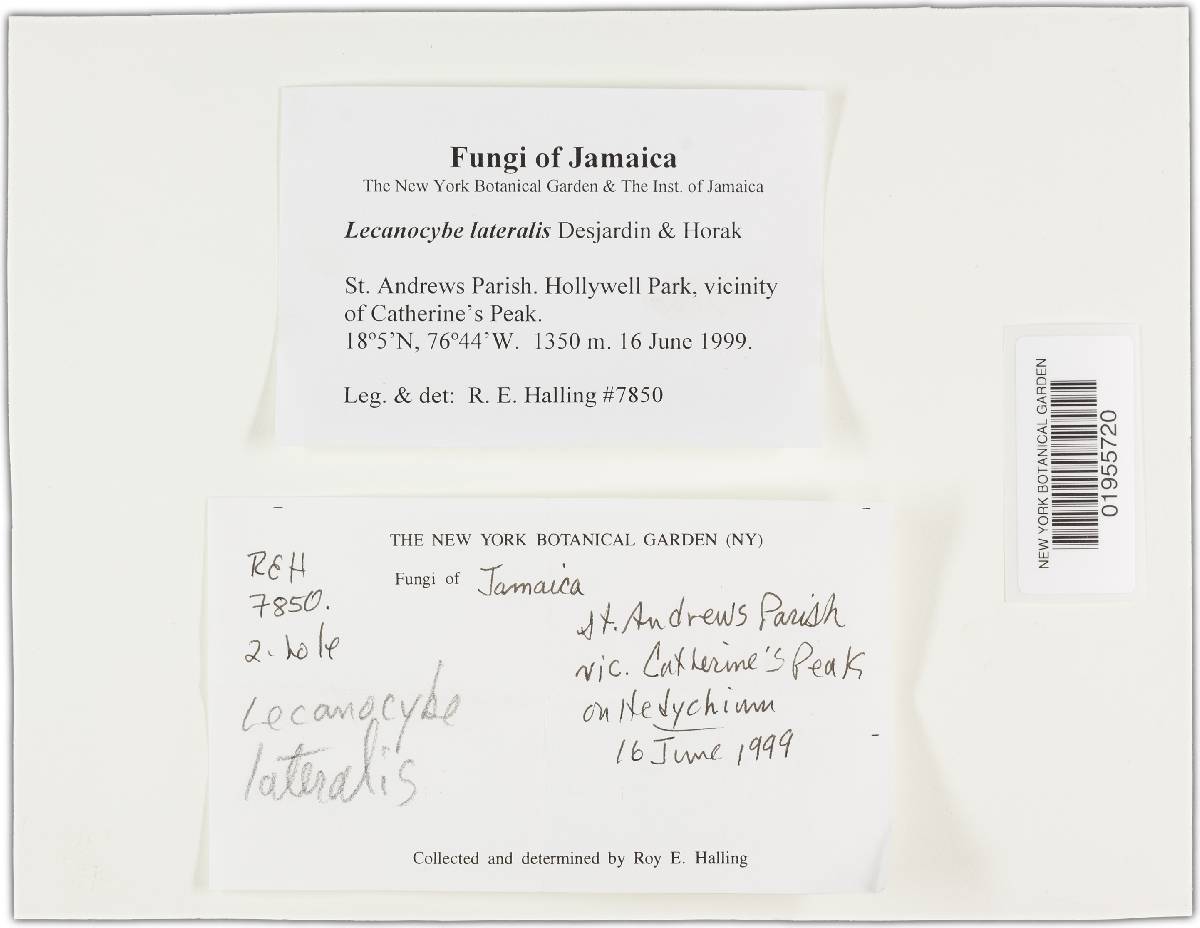 Fungi of Jamaica
The New York Botanical Garden & The Inst. of Jamaica
Lecanocybe lateralis Desjardin & Horak
St. Andrews Parish. Hollywell Park, vicinity
of Catherine's Peak.
18º5'N, 76º44'W. 1350 m. 16 June 1999.
Leg. & det: R. E. Halling #7850
NEW YORK BOTANICAL GARDEN
01955720
THE NEW YORK BOTANICAL GARDEN (NY)
Fungi of Jamaica
REH
7850.
2.
Lecanocybe
lateralis
St. Andrews Parish
vic. Catherine's Peak
on Hedychium
16 June 1999
Collected and determined by Roy E. Halling